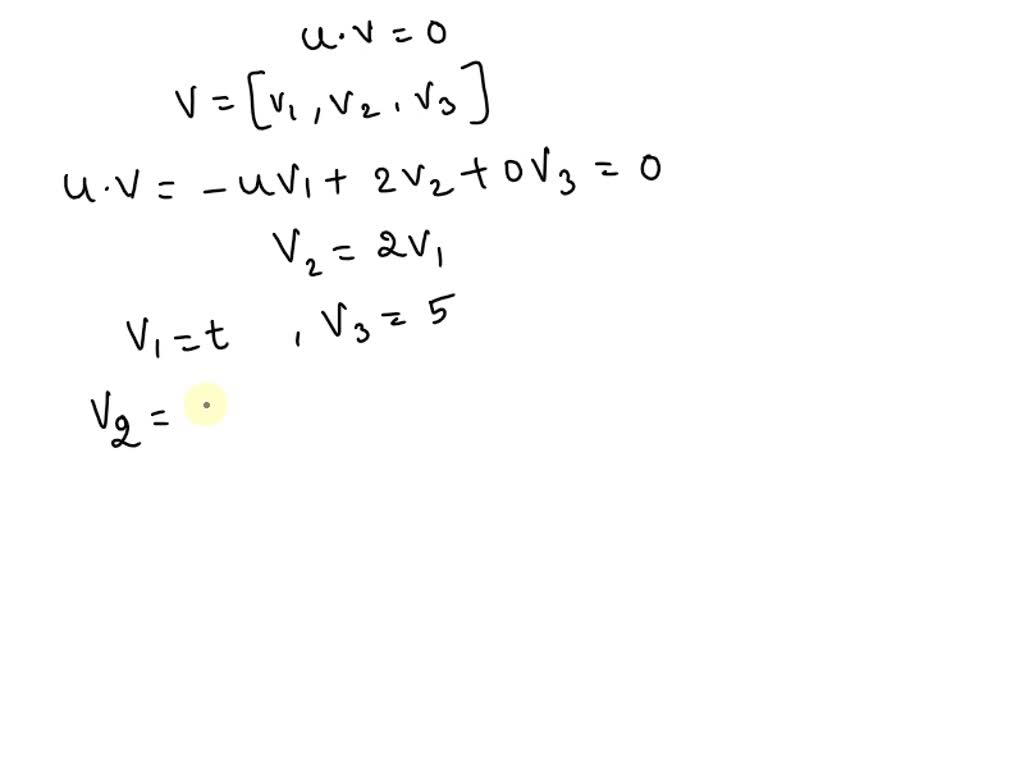 u·v = 0
V = [v₁, v₂, v₃]
u·v = -uv₁ + 2v₂ + 0v₃ = 0
V₂ = 2v₁
V₁ = t , V₃ = 5
V₂ =